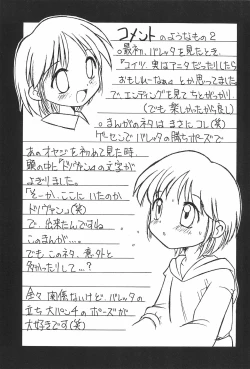 コメントのようなもの2
○最初、バレッタを見たとき、
「コイツ、実はアニタだったりしたら
おもしれーなぁ」とか思ってました
で、エンディングを見てちとがっかり。
(でも楽しかったから良し)
○まんがのネタはまさにコレ(笑)
ゲーセンでバレッタの勝ちポーズで
あのオヤジを初めて見た時、
頭の中に「ドノヴァン」の文字が
よぎりました。
「そーか、ここにいたのか
ドノヴァン」(笑)
で、出来たんですね
このまんが…。
でも、このネタ、意外と
多かったりして…?
全々関係ないけど、バレッタの
立ち大パンチのポーズが
大好きです(笑)